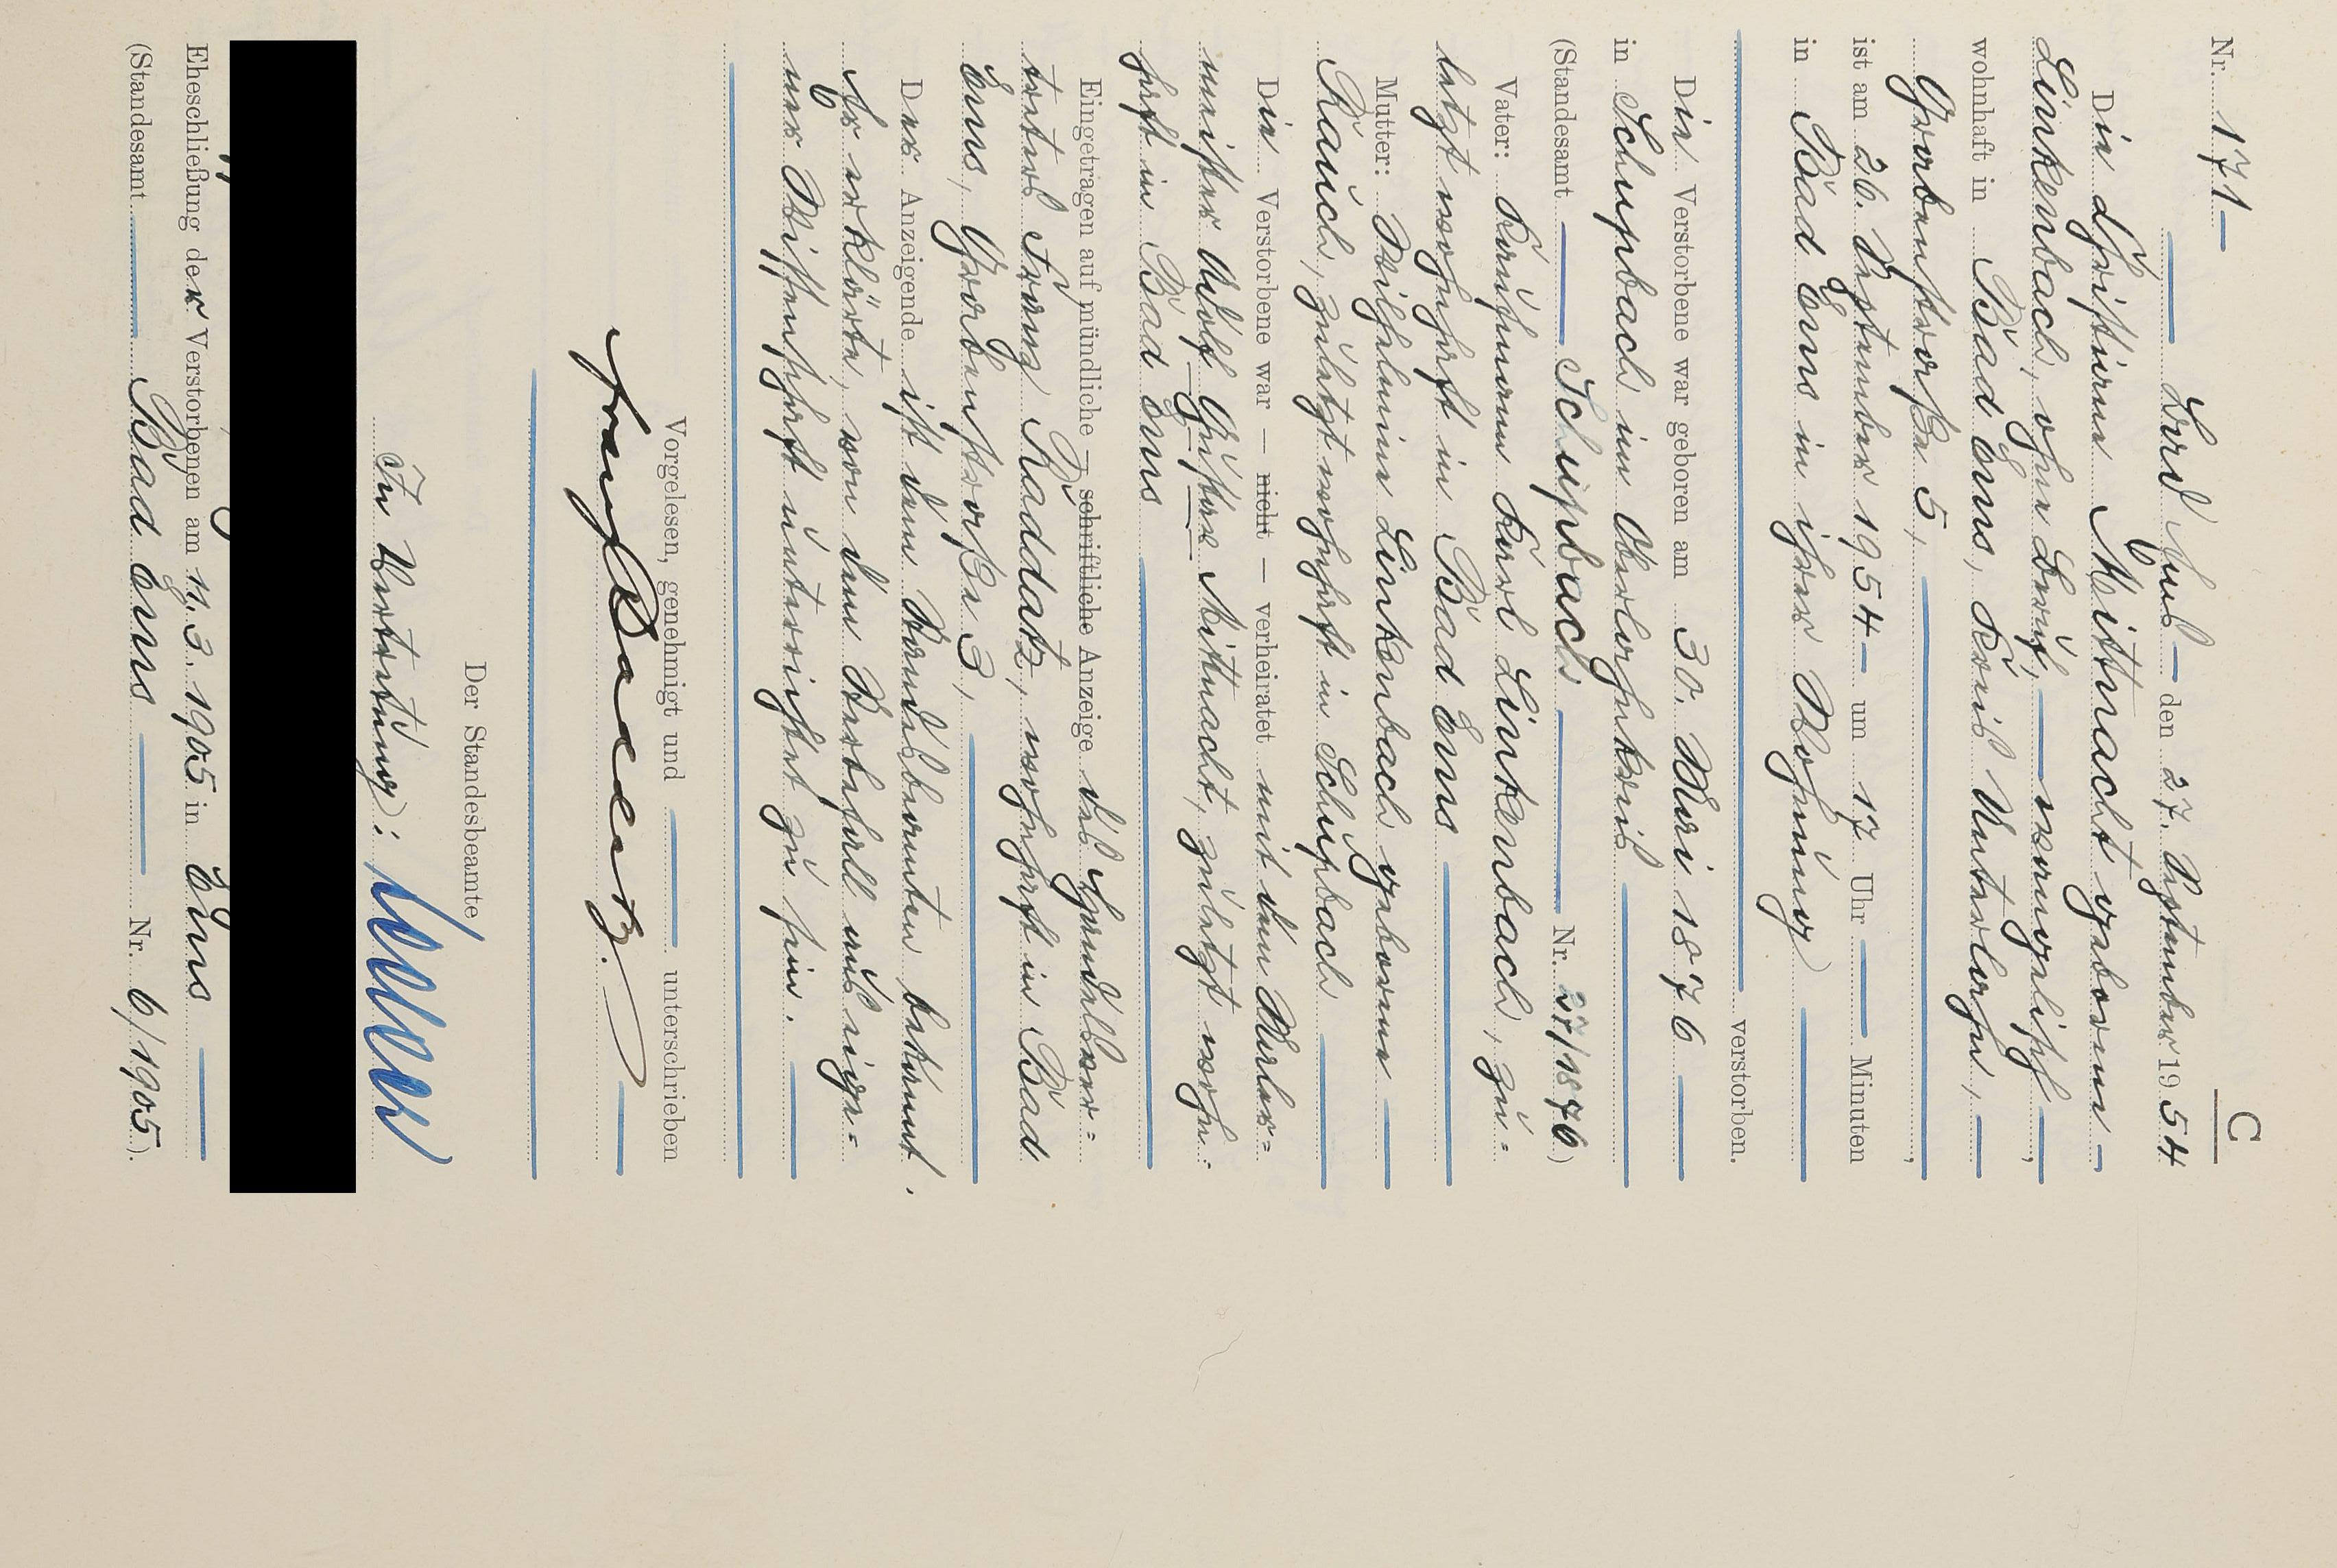 C
Nr. 171
Bad Ems den 27. September 1954
Die Christiane Mittnacht geborene
Linkenbach, ohne Beruf, evangelisch,
wohnhaft in Bad Ems, Kreis Unterlahn,
Grabenstraße 5,
ist am 26. September 1954 um 17 Uhr Minuten
in Bad Ems in ihrer Wohnung
verstorben.
Die Verstorbene war geboren am 30. Mai 1876
in Schupbach im Oberlahnkreis
(Standesamt Schupbach Nr. 27/1876)
Vater: Kaufmann Karl Linkenbach, zu=
letzt wohnhaft in Bad Ems
Mutter: Wilhelmine Linkenbach geborene
Rauch, zuletzt wohnhaft in Schupbach
Die Verstorbene war — nicht — verheiratet mit dem Maler=
meister Adolf Gustav Mittnacht, zuletzt wohn=
haft in Bad Ems
Eingetragen auf mündliche — schriftliche Anzeige des Handelsver=
treters Franz Raddatz, wohnhaft in Bad
Ems, Grabenstraße 3,
Der Anzeigende ist dem Standesbeamten bekannt.
Er erklärte, von dem Sterbefall aus eige=
ner Wissenschaft unterrichtet zu sein.
Vorgelesen, genehmigt und unterschrieben
Franz Raddatz.
Der Standesbeamte
In Vertretung:
Eheschließung der Verstorbenen am 11.3.1905 in Ems
(Standesamt Bad Ems Nr. 6/1905).